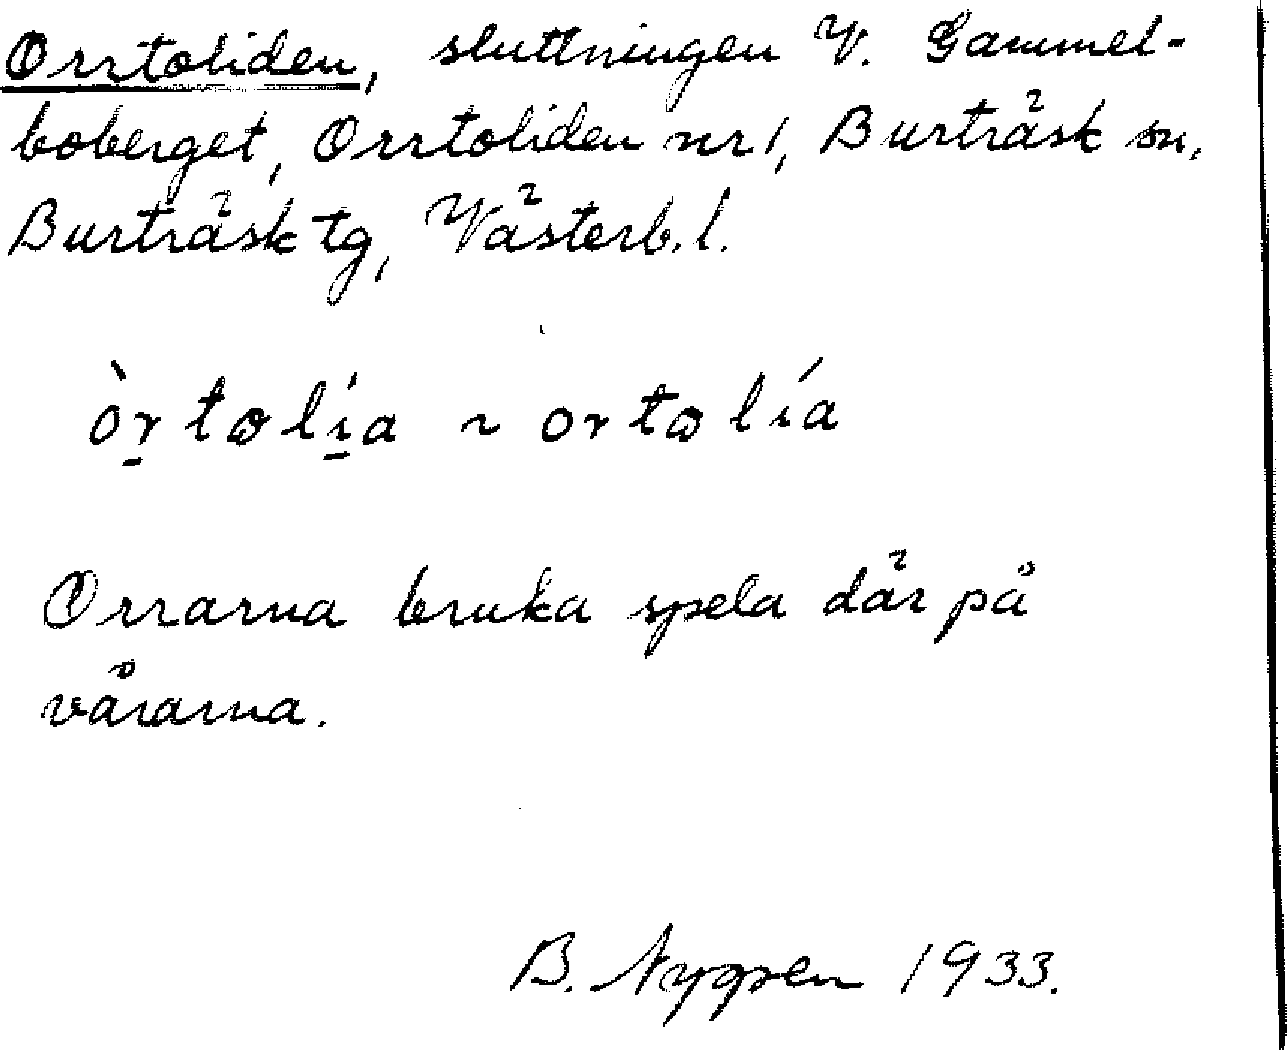 Orrtoliden, sluttningen V. Gammel-
boberget, Orrtoliden nr 1, Burträsk sn,
Burträsk tg, Västerb. l.
òr̠tωlí̠a ~ ortωlía
Orrarna bruka spela där på
vårarna.
B. Nygren 1933.